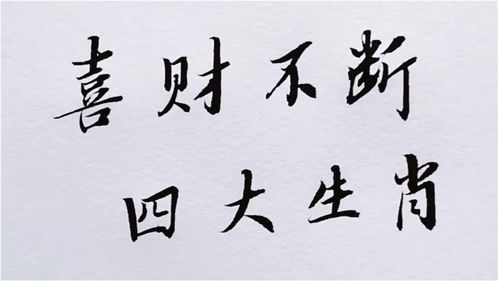 喜财不断
四大生肖